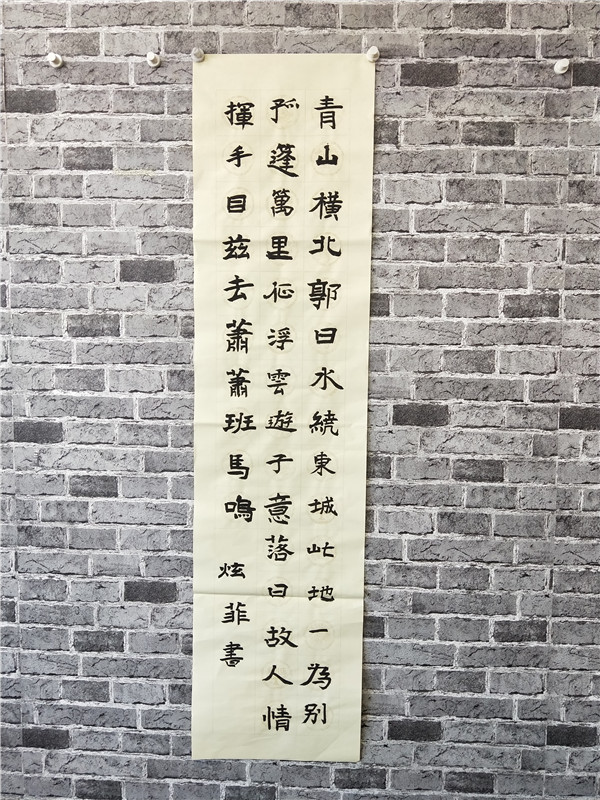 青山橫北郭日水繞東城此地一為别
孤蓬萬里征浮雲遊子意落日故人情
揮手目兹去蕭蕭班馬鳴
炫菲書